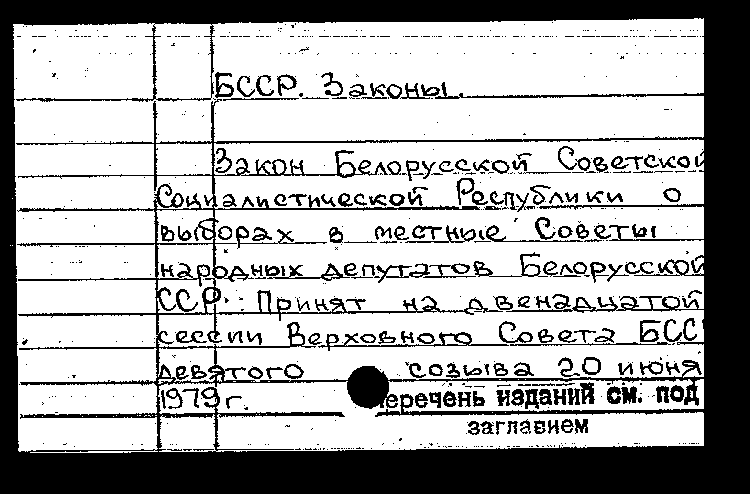 БССР. Законы.
Закон Белорусской Советской
Социалистической Республики о
выборах в местные Советы
народных депутатов Белорусской
ССР: Принят на двенадцатой
сессии Верховного Совета БССР
девятого созыва 20 июня
1979 г.
еречень изданий см. под
заглавием